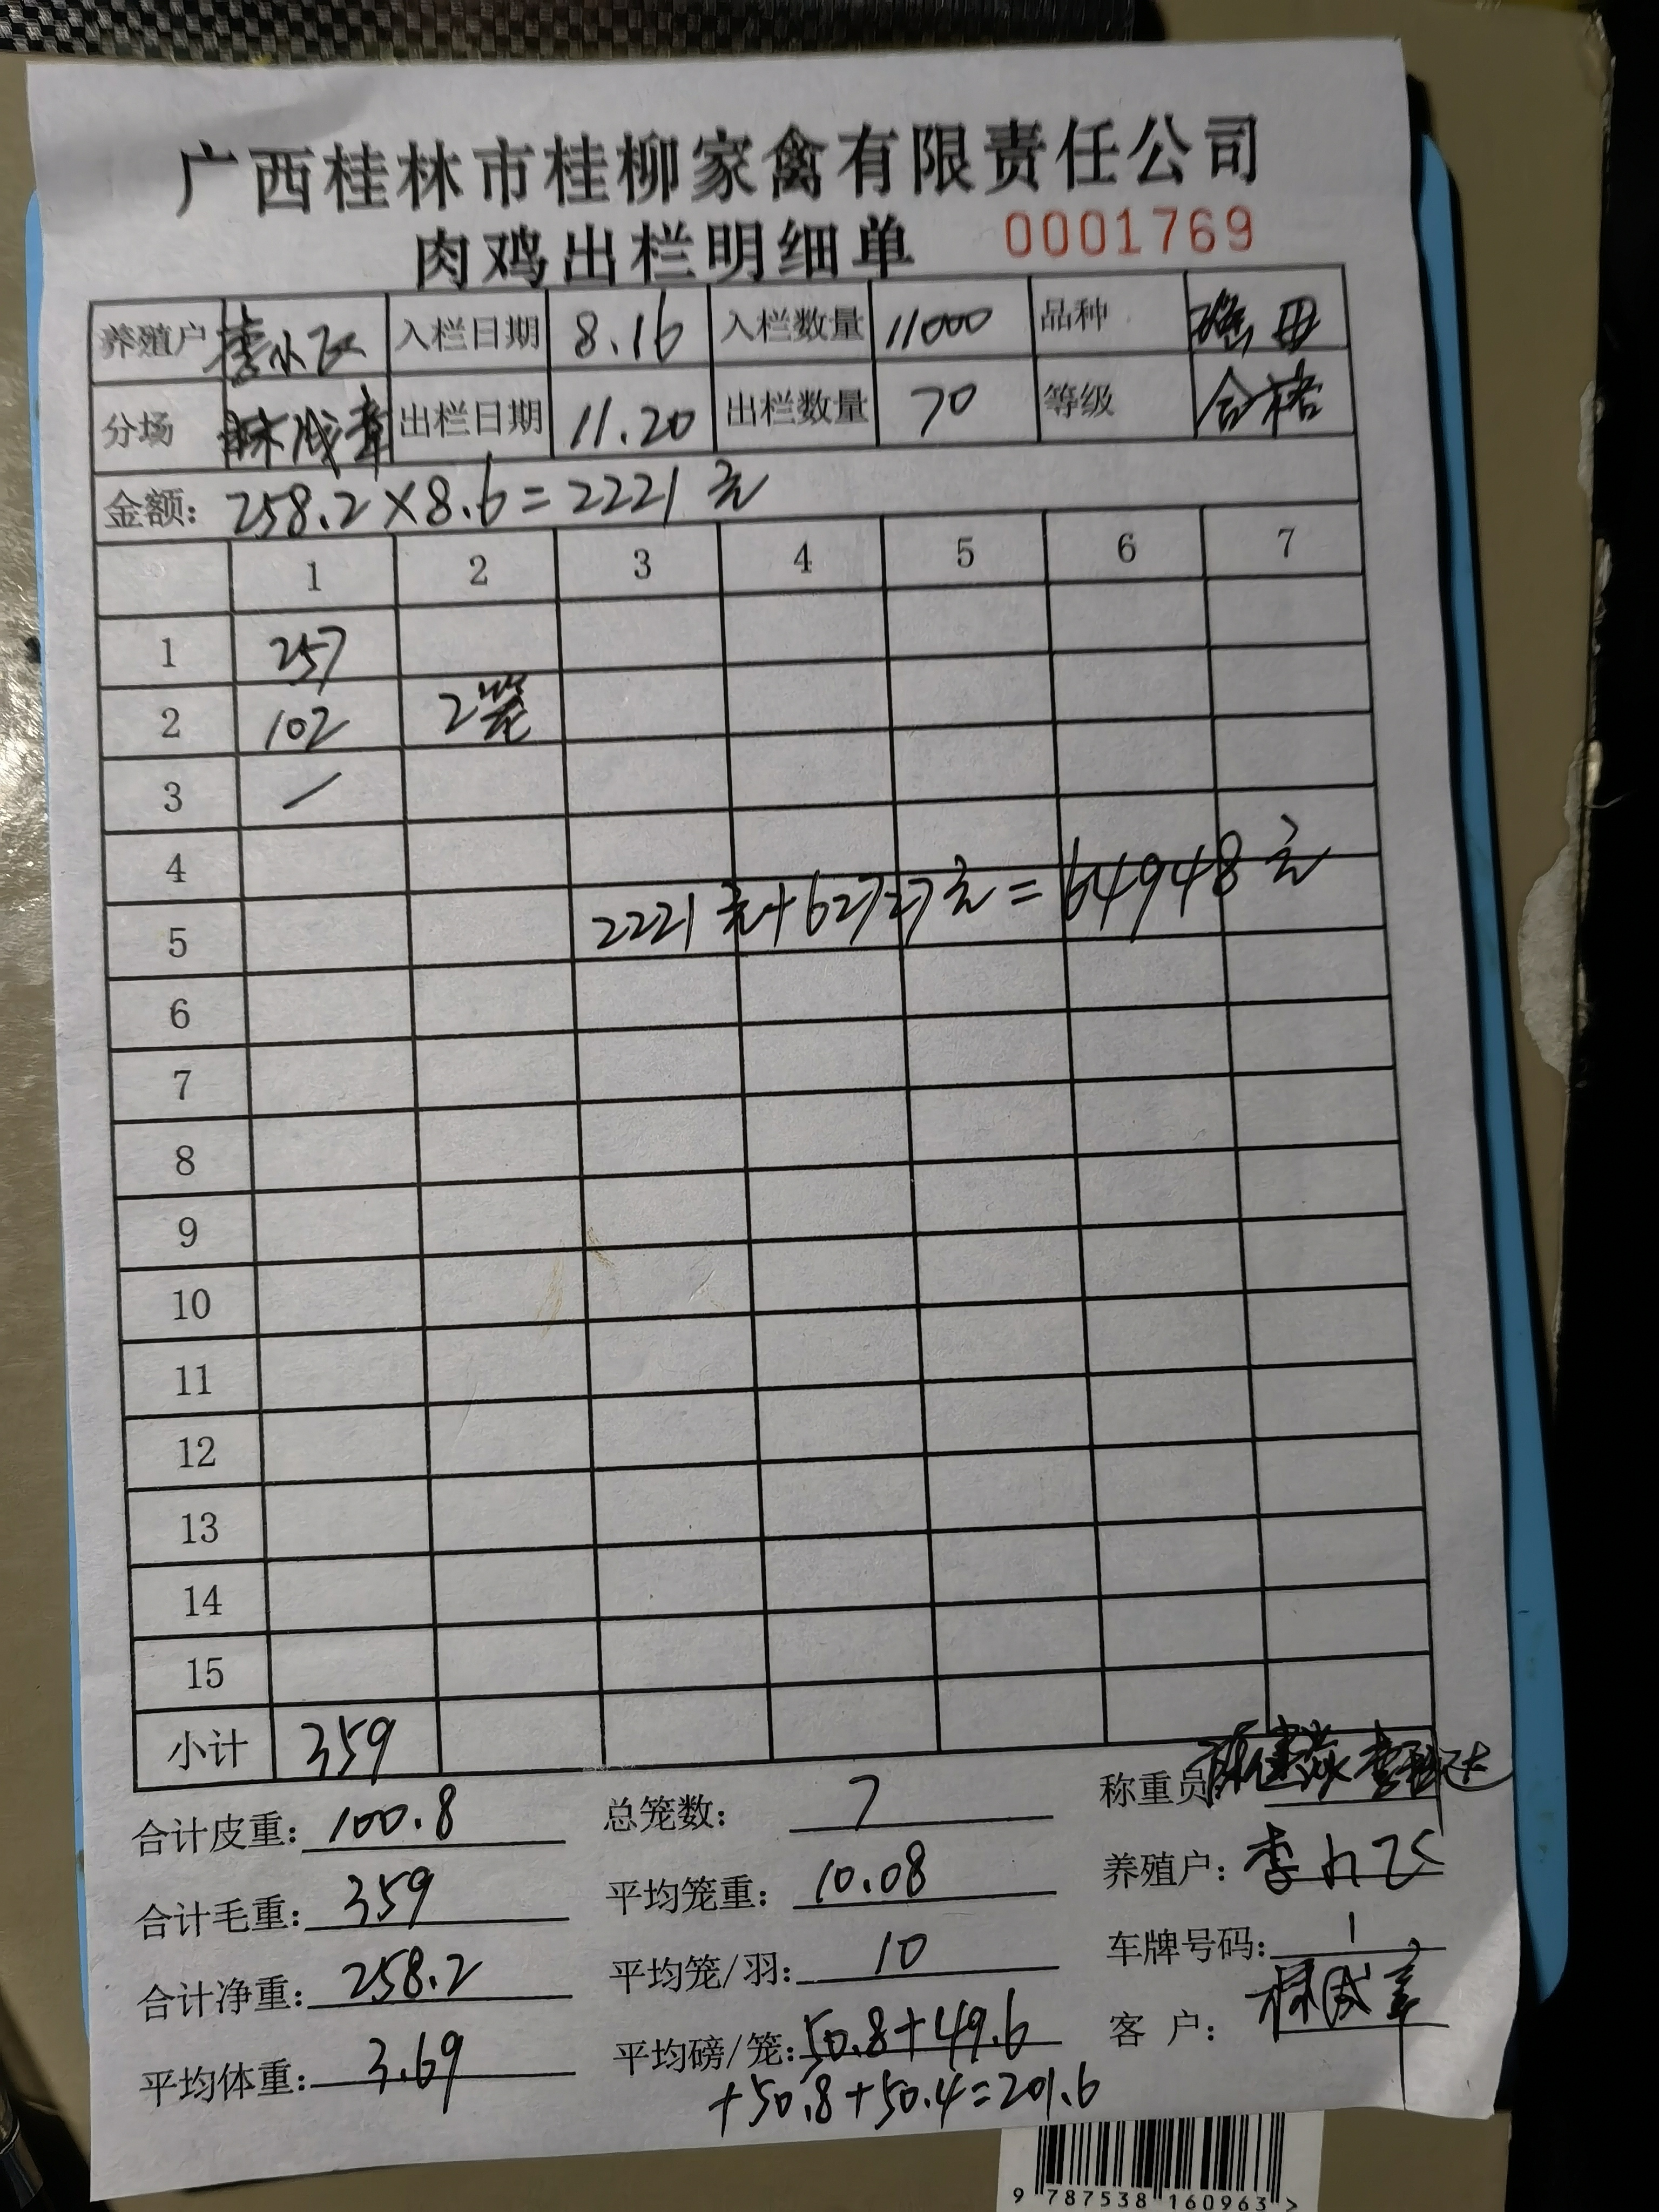 广西桂林市桂柳家禽有限责任公司
肉鸡出栏明细单 0001769
养殖户 李小飞 入栏日期 8.16 入栏数量 11000 品种
分场 出栏日期 11.20 出栏数量 70 等级 合格
金额: 258.2×8.6=2221元
1 2 3 4 5 6 7
1 257
2 102 2笼
3 /
4
5 2221元+62727元=64948元
6
7
8
9
10
11
12
13
14
15
小计 359
合计皮重: 100.8 总笼数: 7 称重员
合计毛重: 359 平均笼重: 10.08 养殖户: 李小飞
合计净重: 258.2 平均笼/羽: 10 车牌号码: 1
平均体重: 3.69 平均磅/笼: 50.8+49.6 客 户:
+50.8+50.4=201.6
9 787538 160963 >